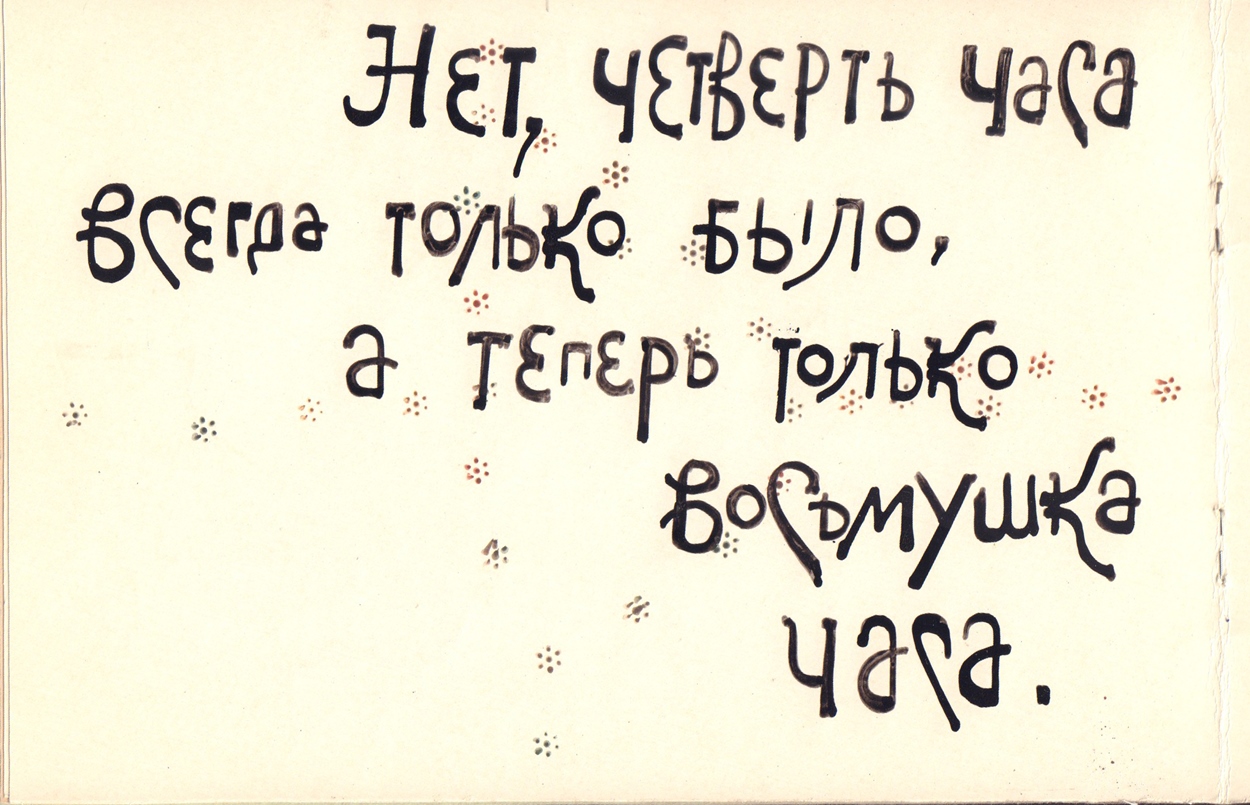 Нет, четверть часа
всегда только было,
а теперь только
восьмушка
часа.